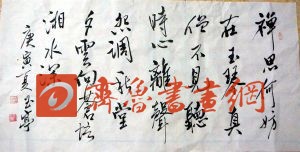 禅思何妨
在玉琴真
僧不見聽
時心離聲
怨調秋堂
夕雲向蒼梧
湘水深
庚寅夏玉
齊魯書畫網